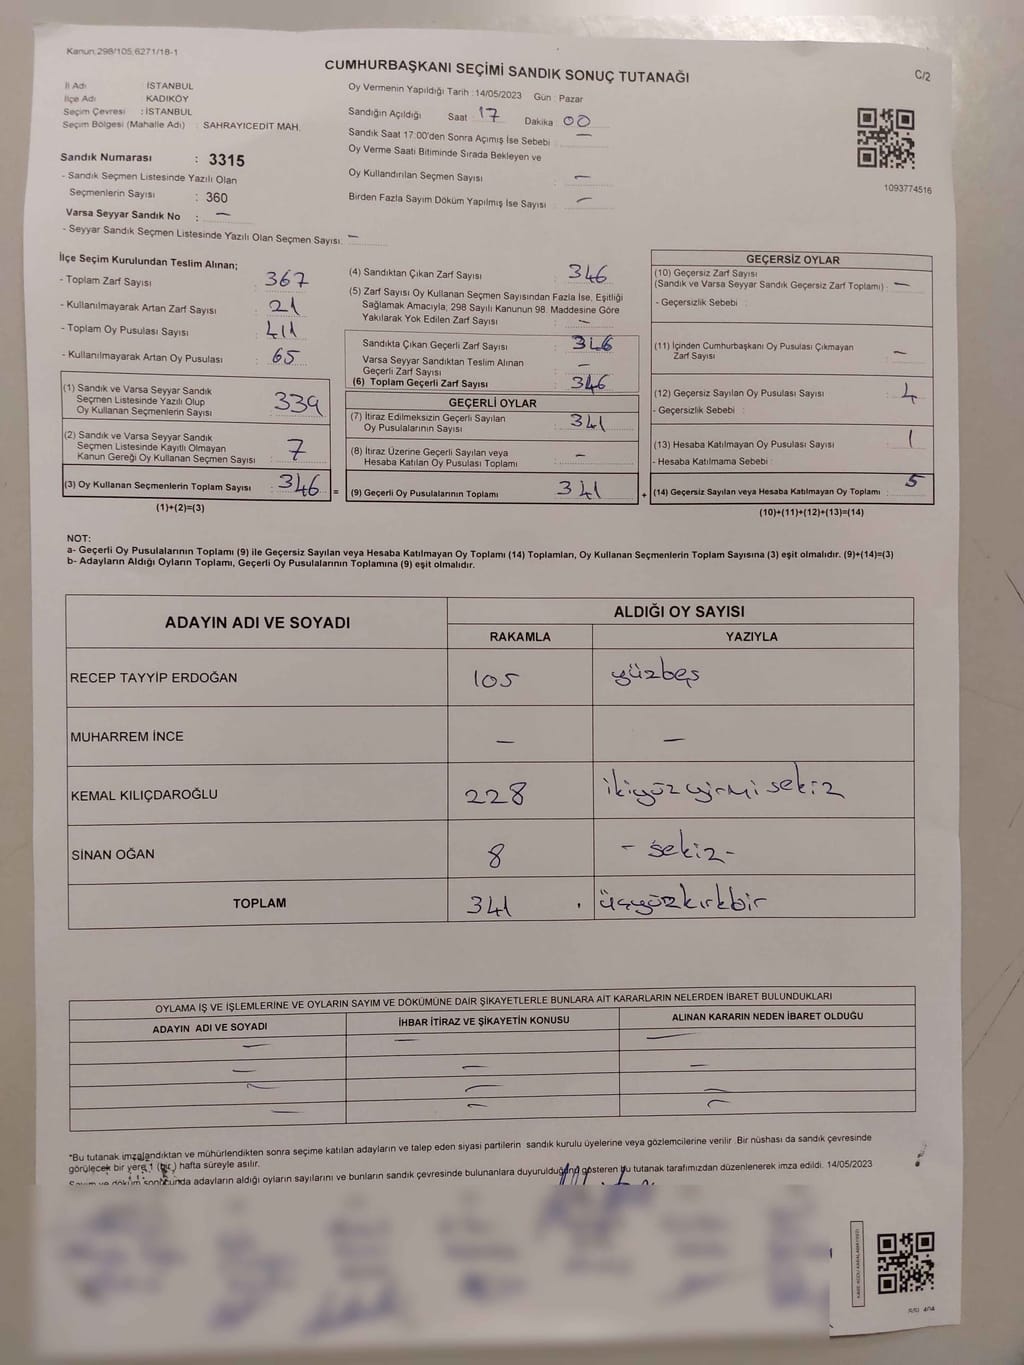 Kanun:298/105,6271/18-1
CUMHURBAŞKANI SEÇİMİ SANDIK SONUÇ TUTANAĞI
C/2
İl Adı : İSTANBUL
İlçe Adı : KADIKÖY
Seçim Çevresi : İSTANBUL
Seçim Bölgesi (Mahalle Adı) : SAHRAYICEDİT MAH.
Oy Vermenin Yapıldığı Tarih : 14/05/2023 Gün : Pazar
Sandığın Açıldığı Saat 17 Dakika 00
Sandık Saat 17:00'den Sonra Açımış İse Sebebi : —
Oy Verme Saati Bitiminde Sırada Bekleyen ve
Oy Kullandırılan Seçmen Sayısı : —
Birden Fazla Sayım Döküm Yapılmış İse Sayısı : —
1093774516
Sandık Numarası : 3315
- Sandık Seçmen Listesinde Yazılı Olan
Seçmenlerin Sayısı : 360
Varsa Seyyar Sandık No : —
- Seyyar Sandık Seçmen Listesinde Yazılı Olan Seçmen Sayısı: —
İlçe Seçim Kurulundan Teslim Alınan;
- Toplam Zarf Sayısı : 367
- Kullanılmayarak Artan Zarf Sayısı : 21
- Toplam Oy Pusulası Sayısı : 411
- Kullanılmayarak Artan Oy Pusulası : 65
(1) Sandık ve Varsa Seyyar Sandık
Seçmen Listesinde Yazılı Olup
Oy Kullanan Seçmenlerin Sayısı : 339
(2) Sandık ve Varsa Seyyar Sandık
Seçmen Listesinde Kayıtlı Olmayan
Kanun Gereği Oy Kullanan Seçmen Sayısı : 7
(3) Oy Kullanan Seçmenlerin Toplam Sayısı : 346 =
(1)+(2)=(3)
(4) Sandıktan Çıkan Zarf Sayısı : 346
(5) Zarf Sayısı Oy Kullanan Seçmen Sayısından Fazla İse, Eşitliği
Sağlamak Amacıyla, 298 Sayılı Kanunun 98. Maddesine Göre
Yakılarak Yok Edilen Zarf Sayısı : —
Sandıkta Çıkan Geçerli Zarf Sayısı : 346
Varsa Seyyar Sandıktan Teslim Alınan
Geçerli Zarf Sayısı : —
(6) Toplam Geçerli Zarf Sayısı : 346
GEÇERLİ OYLAR
(7) İtiraz Edilmeksizin Geçerli Sayılan
Oy Pusulalarının Sayısı : 341
(8) İtiraz Üzerine Geçerli Sayılan veya
Hesaba Katılan Oy Pusulası Toplamı : —
(9) Geçerli Oy Pusulalarının Toplamı : 341 +
GEÇERSİZ OYLAR
(10) Geçersiz Zarf Sayısı
(Sandık ve Varsa Seyyar Sandık Geçersiz Zarf Toplamı) : —
- Geçersizlik Sebebi :
(11) İçinden Cumhurbaşkanı Oy Pusulası Çıkmayan
Zarf Sayısı : —
(12) Geçersiz Sayılan Oy Pusulası Sayısı : 4
- Geçersizlik Sebebi :
(13) Hesaba Katılmayan Oy Pusulası Sayısı : 1
- Hesaba Katılmama Sebebi :
(14) Geçersiz Sayılan veya Hesaba Katılmayan Oy Toplamı : 5
(10)+(11)+(12)+(13)=(14)
NOT:
a- Geçerli Oy Pusulalarının Toplamı (9) ile Geçersiz Sayılan veya Hesaba Katılmayan Oy Toplamı (14) Toplamları, Oy Kullanan Seçmenlerin Toplam Sayısına (3) eşit olmalıdır. (9)+(14)=(3)
b- Adayların Aldığı Oyların Toplamı, Geçerli Oy Pusulalarının Toplamına (9) eşit olmalıdır.
ADAYIN ADI VE SOYADI
ALDIĞI OY SAYISI
RAKAMLA YAZIYLA
RECEP TAYYİP ERDOĞAN 105 yüzbeş
MUHARREM İNCE — —
KEMAL KILIÇDAROĞLU 228 ikiyüzyirmisekiz
SİNAN OĞAN 8 - sekiz -
TOPLAM 341 üçyüzkırkbir
OYLAMA İŞ VE İŞLEMLERİNE VE OYLARIN SAYIM VE DÖKÜMÜNE DAİR ŞİKAYETLERLE BUNLARA AİT KARARLARIN NELERDEN İBARET BULUNDUKLARI
ADAYIN ADI VE SOYADI İHBAR İTİRAZ VE ŞİKAYETİN KONUSU ALINAN KARARIN NEDEN İBARET OLDUĞU
— — —
— — —
— — —
— — —
*Bu tutanak imzalandıktan ve mühürlendikten sonra seçime katılan adayların ve talep eden siyasi partilerin sandık kurulu üyelerine veya gözlemcilerine verilir. Bir nüshası da sandık çevresinde
görülecek bir yere 1 (bir) hafta süreyle asılır.
Sayım ve döküm sonucunda adayların aldığı oyların sayılarını ve bunların sandık çevresinde bulunanlara duyurulduğunu gösteren bu tutanak tarafımızdan düzenlenerek imza edildi. 14/05/2023